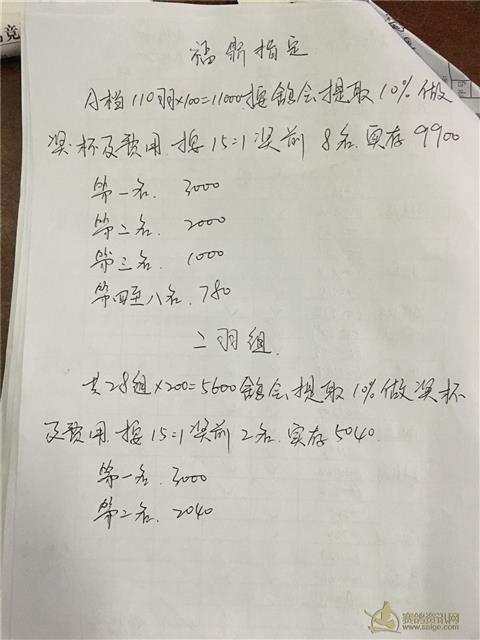 福鼎指定
A档110羽×100=11000.按鸽会提取10%做
奖杯及费用.按15:1奖前8名.实存9900
第一名. 3000
第二名. 2000
第三名. 1000
第四至八名.780
二羽组.
共28组×200=5600鸽会提取10%做奖杯
及费用.按15:1奖前2名.实存5040.
第一名.3000
第二名.2040
赛鸽资讯网
www.saige.com